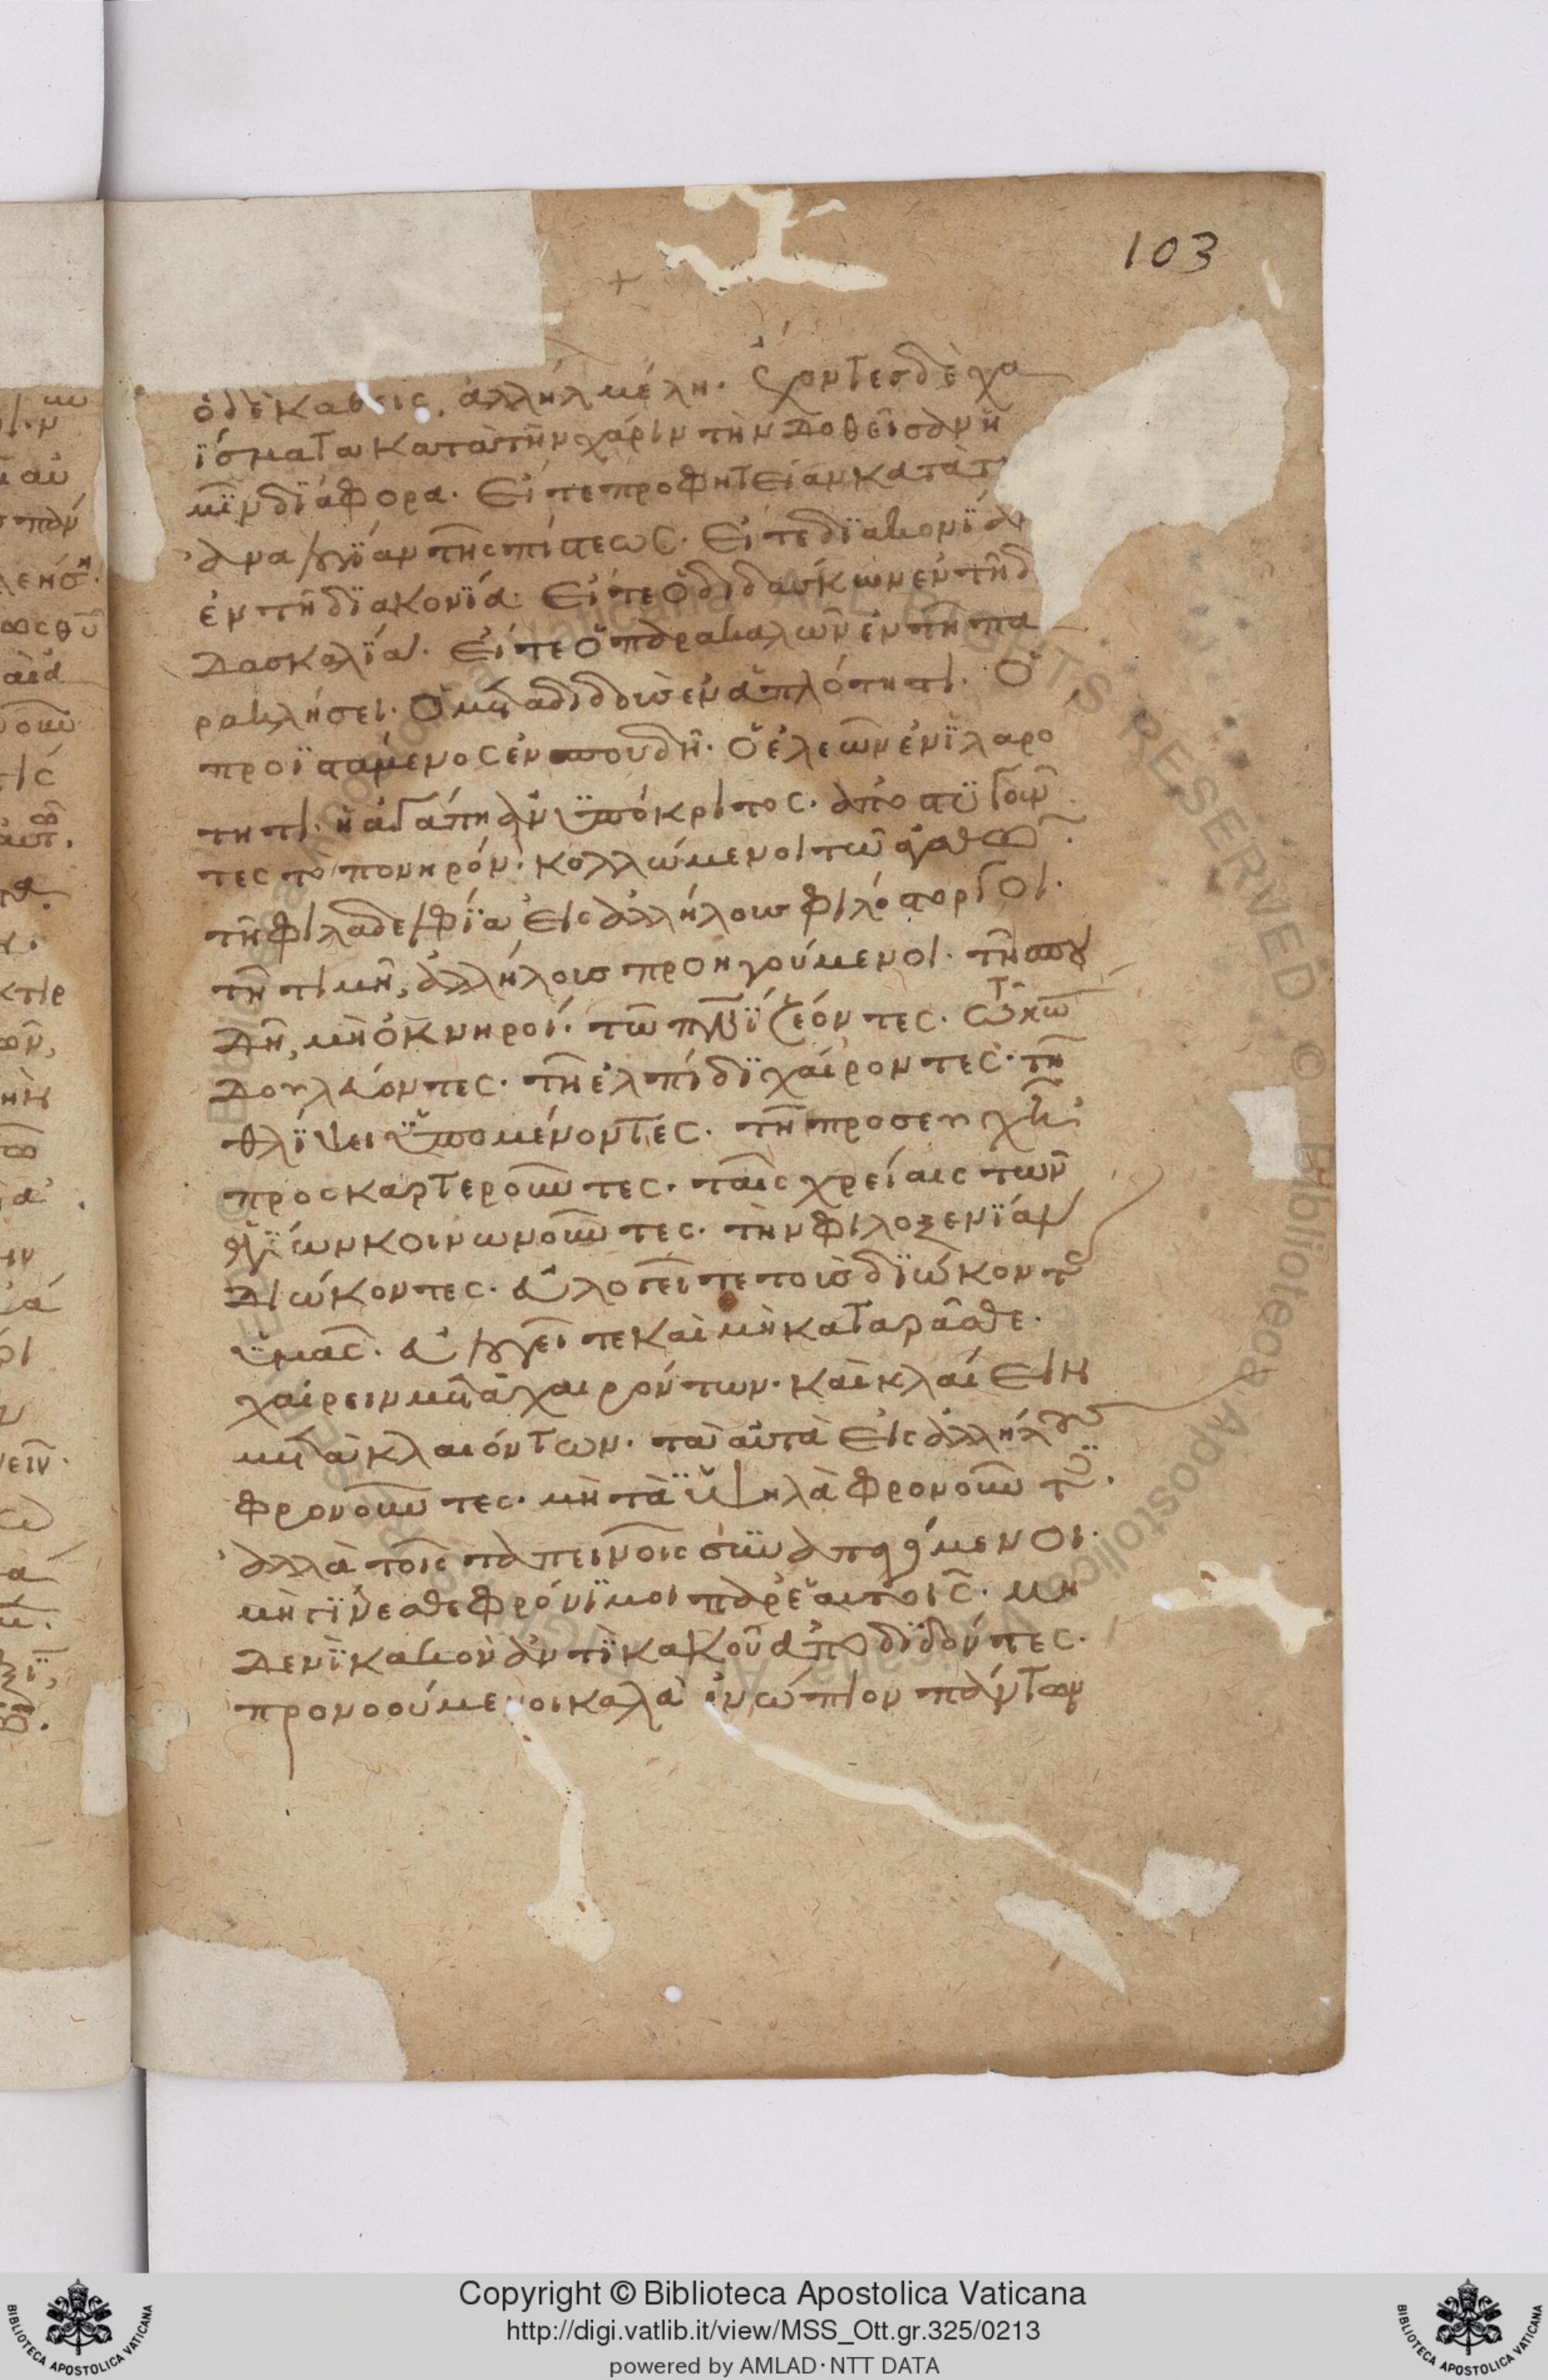 103
ὁ δὲ καθεις, ἀλλήλ μέλη. ἔχοντες δὲ χα
ϊσματα κατὰ τὴν χάριν τὴν δοθεῖσαν ἡ
μῖν διάφορα. Εἴτε προφητείαν κατὰ τ
ἀναλογΐαν τῆς πίστεως. Εἴτε δϊακονΐαν
ἐν τῆ δϊακονΐα. Εἴτε ὁ διδασκων ἐν τῆ δ
δασκαλΐα. Εἴτε ὁ παρακαλῶν ἐν τῆ πα
ρακλήσει. Ὁ μεταδιδοὺσ ἐν ἁπλότητι. Ὁ
προϊσταμενος ἐν σπουδῆ. Ὁ ἐλεῶν ἐν ἱλαρο
τητι. ἡ ἀγάπη ἀνϋπόκριτος. ἀποστυγοῦν
τες το πονηρόν. κολλώμενοι τῶ ἀγαθῶ.
τῆ φιλαδελφΐα Εἰς ἀλλήλους φιλόστοργοι.
τῆ τιμῆ, ἀλλήλουσ προηγούμενοι. τῆ σπου
δῆ, μὴ ὀκνηροί. τῶ πνῒ ζέοντες. τῶ κω
δουλεύοντες. τῆ ἐλπίδι χαίροντες. τῆ
θλΐψει ϋπομένοντες. τῆ προσευχῆ
προσκαρτεροῦντες. ταῖς χρείαις τῶν
ἁγΐων κοινωνοῦντες. τὴν φιλοξενΐαν
διώκοντες. εὐλογεῖτε τοὺσ διώκοντ
ϋμᾶς. εὐλογεῖτε καὶ μὴ καταρᾶσθε.
χαίρειν μετὰ χαιρόντων. καὶ κλαίειν
μετὰ κλαιόντων. τὸ αὐτὸ Εἰς ἀλλήλους
φρονοῦντες. μὴ τὰ ϋψηλὰ φρονοῦντ.
ἀλλὰ τοῖς ταπεινοῖς συναπαγόμενοι.
μὴ γΐνεσθε φρόνϊμοι παρ' ἑαυτοῖς. μη
δενὶ κακὸν ἀντΐ κακοῦ ἀποδιδόντες.
προνοούμενοι καλὰ ἐνώπιον πάντων
Copyright © Biblioteca Apostolica Vaticana
http://digi.vatlib.it/view/MSS_Ott.gr.325/0213
powered by AMLAD·NTT DATA